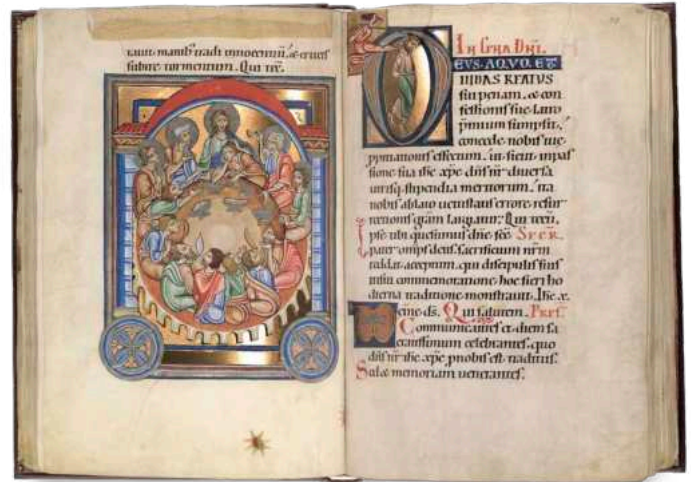 subire tormentum. Qui tec̄.
IN CENA DN̄I.
EVS. A QVO. ET
IVDAS REATVS
sui penam. & con
fessionis sue latro
p̄mium sumpsit.
concede nobis tue
ppitiationis effectum. ut sicut in pas
sione sua ihc xpc dn̄s nr̄ diuersa
utrisq; stipendia meritorum. ita
nobis ablato uetustatis errore resur
rectionis grām largiatur. Qui tecū.
Ipse tibi quesumus dn̄e sc̄e SECR.
pater omps deus. sacrificium nr̄m
reddat acceptum. qui discipulis suis
in sui commemoratione hoc fieri ho
dierna traditione monstrauit. Ihc x.
Qui PREF.
Communicantes et diem sa
cratissimum celebrantes. quo
dn̄s nr̄ ihc xpc pnobis est traditus.
Sed & memoriam uenerantes.